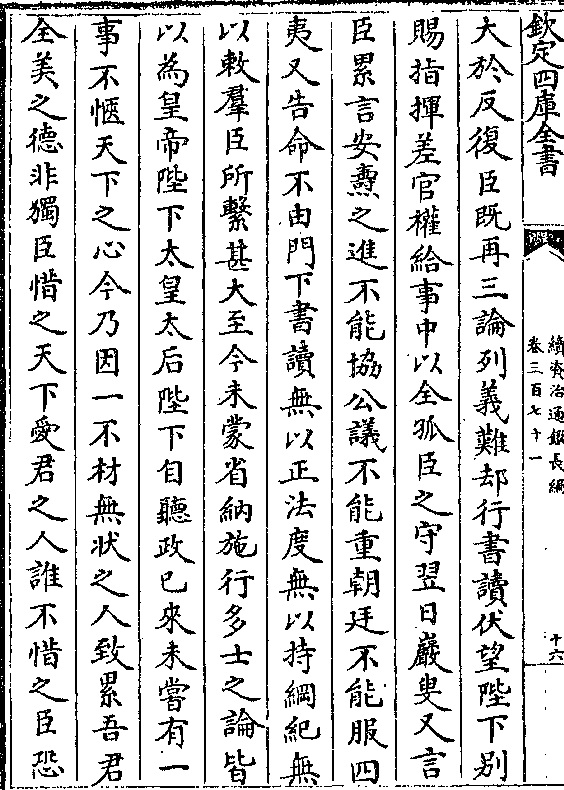 欽定四庫全書
續資治通鑑長編
卷三百七十一
十六
大於反復臣既再三論列義難却行書讀伏望陛下別
賜指揮差官權給事中以全孤臣之守翌日巖叟又言
臣累言安燾之進不能協公議不能重朝廷不能服四
夷又告命不由門下書讀無以正法度無以持綱紀無
以敕羣臣所繫甚大至今未蒙省納施行多士之論皆
以為皇帝陛下太皇太后陛下自聽政已來未嘗有一
事不愜天下之心今乃因一不材無狀之人致累吾君
全美之德非獨臣惜之天下愛君之人誰不惜之臣恐